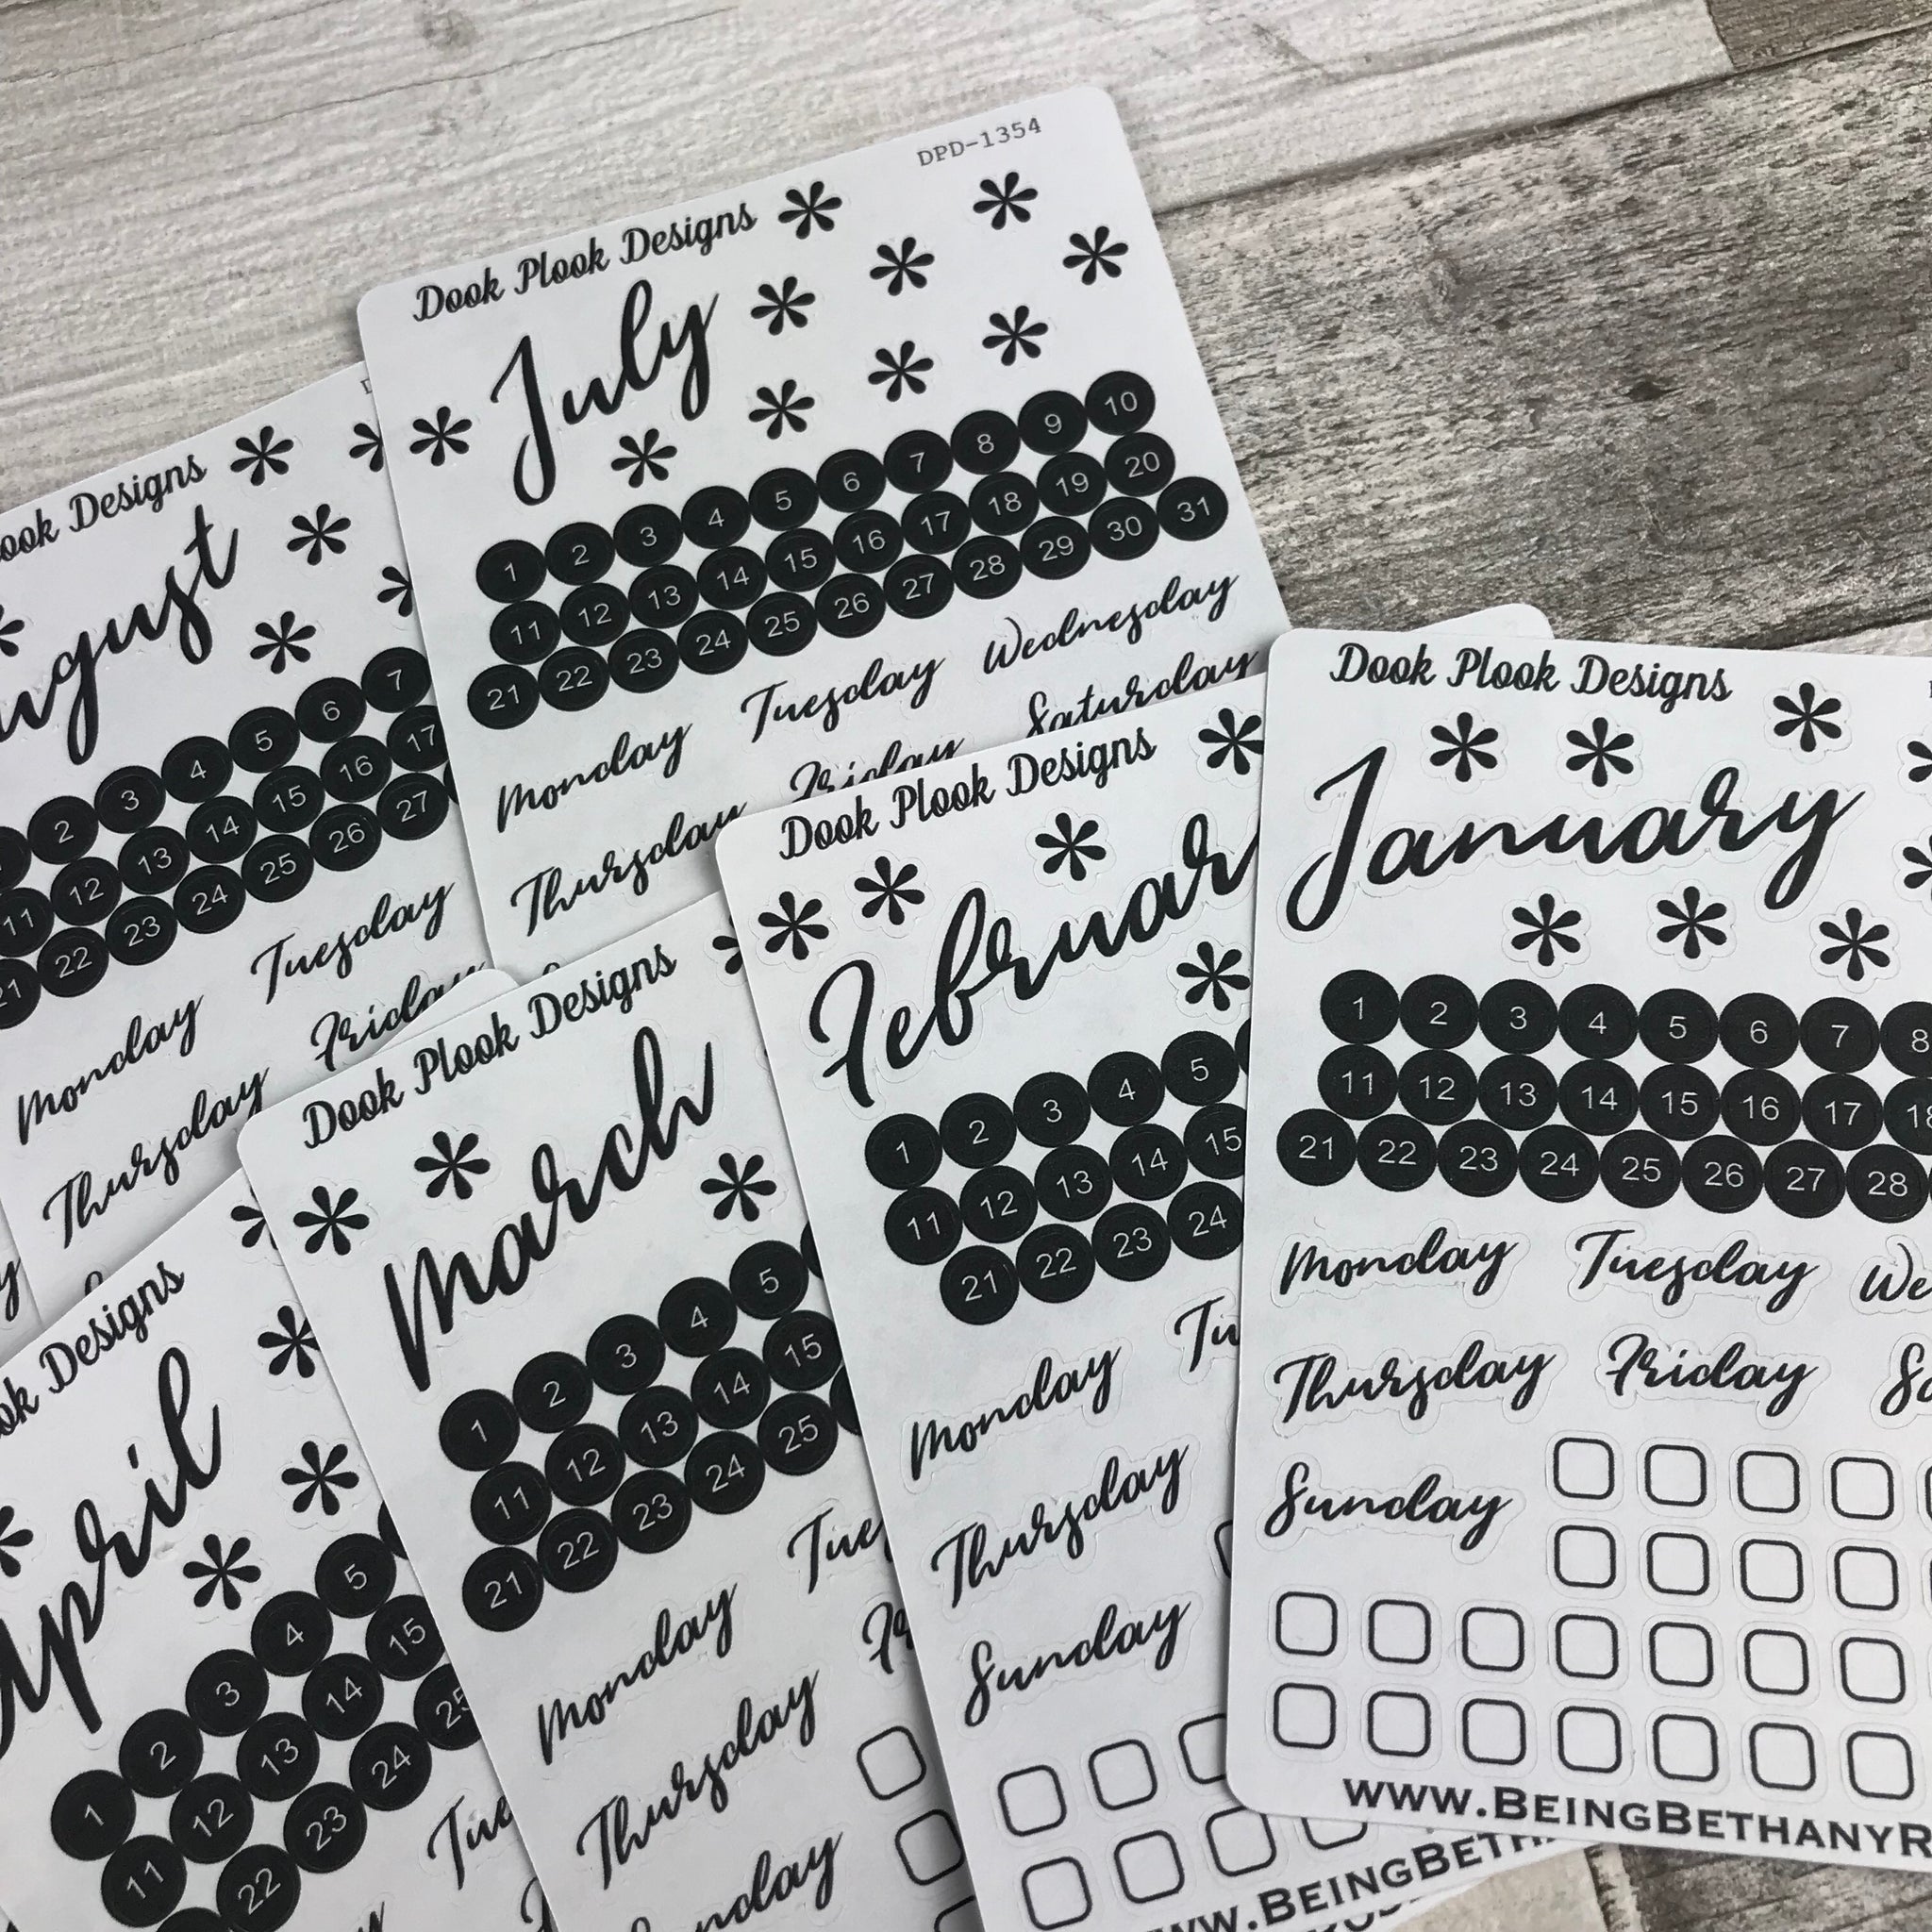 DPD-1354
Dook Plook Designs
July
1 2 3 4 5 6 7 8 9 10
11 12 13 14 15 16 17 18 19 20
21 22 23 24 25 26 27 28 29 30 31
Monday Tuesday Wednesday
Thursday Friday Saturday
Designs
2 3 4 5 6 7
11 12 13 14 15 16 17
21 22 23 24 25 26 27
Monday Tuesday
Thursday Friday
Dook Plook Designs
January
1 2 3 4 5 6 7 8
11 12 13 14 15 16 17 18
21 22 23 24 25 26 27 28
Monday Tuesday We
Thursday Friday Sa
Sunday
www.BeingBethanyR
Dook Plook Designs
Februar
1 2 3 4 5
11 12 13 14 15
21 22 23 24
Monday Tu
Thursday
Sunday
ww.BeingBeth
Dook Plook Designs
March
1 2 3 4 5
11 12 13 14 15
21 22 23 24 25
Monday Tue
Thursday Fr
Sunday
Designs
April
1 2 3 4 5
11 12 13 14 15
22 23 24 25
Tue